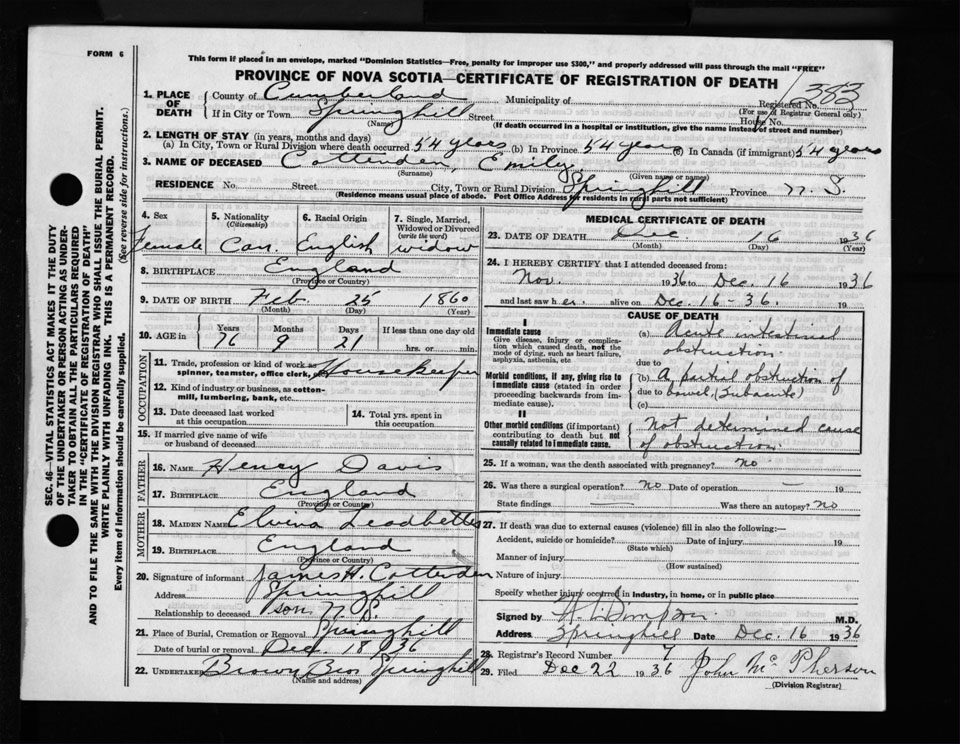 FORM 6
This form if placed in an envelope, marked "Dominion Statistics—Free, penalty for improper use $300," and properly addressed will pass through the mail "FREE"
PROVINCE OF NOVA SCOTIA—CERTIFICATE OF REGISTRATION OF DEATH
383
1. PLACE OF DEATH
County of Cumberland Municipality of Registered No.
(For use of Registrar General only)
If in City or Town Springhill Street House No.
(Name) (If death occurred in a hospital or institution, give the name instead of street and number)
2. LENGTH OF STAY (in years, months and days)
(a) In City, Town or Rural Division where death occurred 54 years (b) In Province 54 years (c) In Canada (if immigrant) 54 years
3. NAME OF DECEASED Cottenden, Emily
(Surname) (Given name or names)
RESIDENCE No. Street City, Town or Rural Division Springhill Province N. S.
(Residence means usual place of abode. Post Office Address for residents in rural parts not sufficient)
4. Sex Female
5. Nationality (Citizenship) Can.
6. Racial Origin English
7. Single, Married, Widowed or Divorced (write the word) widow
8. BIRTHPLACE England
(Province or Country)
9. DATE OF BIRTH Feb. 25 1860
(Month) (Day) (Year)
10. AGE in Years Months Days If less than one day old
76 9 21 hrs. or min.
OCCUPATION
11. Trade, profession or kind of work as spinner, teamster, office clerk, etc. Housekeeper
12. Kind of industry or business, as cotton-mill, lumbering, bank, etc.
13. Date deceased last worked at this occupation
14. Total yrs. spent in this occupation
15. If married give name of wife or husband of deceased
FATHER
16. NAME Henry Davis
17. BIRTHPLACE England
(Province or Country)
MOTHER
18. MAIDEN NAME Elvina Leadbetter
19. BIRTHPLACE England
(Province or Country)
20. Signature of informant James H. Cottenden
Address Springhill
Relationship to deceased son N. S.
21. Place of Burial, Cremation or Removal Springhill
Date of burial or removal Dec. 18, 36
22. Undertaker Brown Bros Springhill
(Name and address)
MEDICAL CERTIFICATE OF DEATH
23. DATE OF DEATH Dec. 16 1936
(Month) (Day) (Year)
24. I HEREBY CERTIFY that I attended deceased from:
Nov. 1936 to Dec. 16 1936
and last saw her alive on Dec. 16-36. 19
CAUSE OF DEATH
I
Immediate cause
Give disease, injury or complication which caused death, not the mode of dying, such as heart failure, asphyxia, asthenia, etc
(a) Acute intestinal obstruction.
due to
Morbid conditions, if any, giving rise to immediate cause (stated in order proceeding backwards from immediate cause).
(b) A partial obstruction of
due to bowel, (Subacute)
(c)
II
Other morbid conditions (if important) contributing to death but not causally related to immediate cause.
Not determined cause of obstruction.
25. If a woman, was the death associated with pregnancy? no
26. Was there a surgical operation? no Date of operation — 19
State findings Was there an autopsy? no
27. If death was due to external causes (violence) fill in also the following:—
Accident, suicide or homicide? Date of injury 19
(State which)
Manner of injury
(How sustained)
Nature of injury
Specify whether injury occurred in industry, in home, or in public place
Signed by M.D.
Address Springhill Date Dec. 16 1936
28. Registrar's Record Number 7
29. Filed Dec 22 1936 John McPherson
(Division Registrar)
SEC. 46—VITAL STATISTICS ACT MAKES IT THE DUTY
OF THE UNDERTAKER OR PERSON ACTING AS UNDER-
TAKER TO OBTAIN ALL THE PARTICULARS REQUIRED
IN THE "CERTIFICATE OF REGISTRATION OF DEATH"
AND TO FILE THE SAME WITH THE DIVISION REGISTRAR WHO SHALL ISSUE THE BURIAL PERMIT.
WRITE PLAINLY WITH UNFADING INK. THIS IS A PERMANENT RECORD.
Every item of information should be carefully supplied. (See reverse side for instructions.)